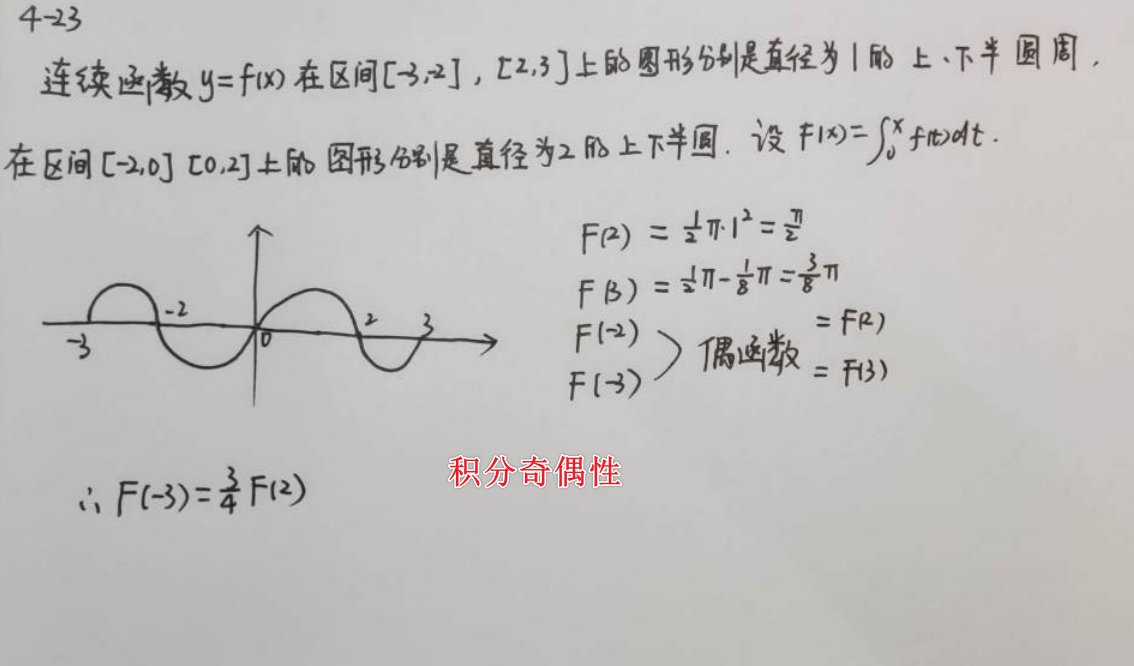 4-23
连续函数y=f(x)在区间[-3,-2],[2,3]上的图形分别是直径为1的上、下半圆周,
在区间[-2,0] [0,2]上的图形分别是直径为2的上下半圆.设F(x)=∫₀ˣf(t)dt.
F(2) = ½π·1² = π/2
F(3) = ½π-⅛π=⅜π
F(-2) 偶函数 = F(2)
F(-3) = F(3)
-3 -2 0 2 3
积分奇偶性
∴ F(-3)=¾F(2)